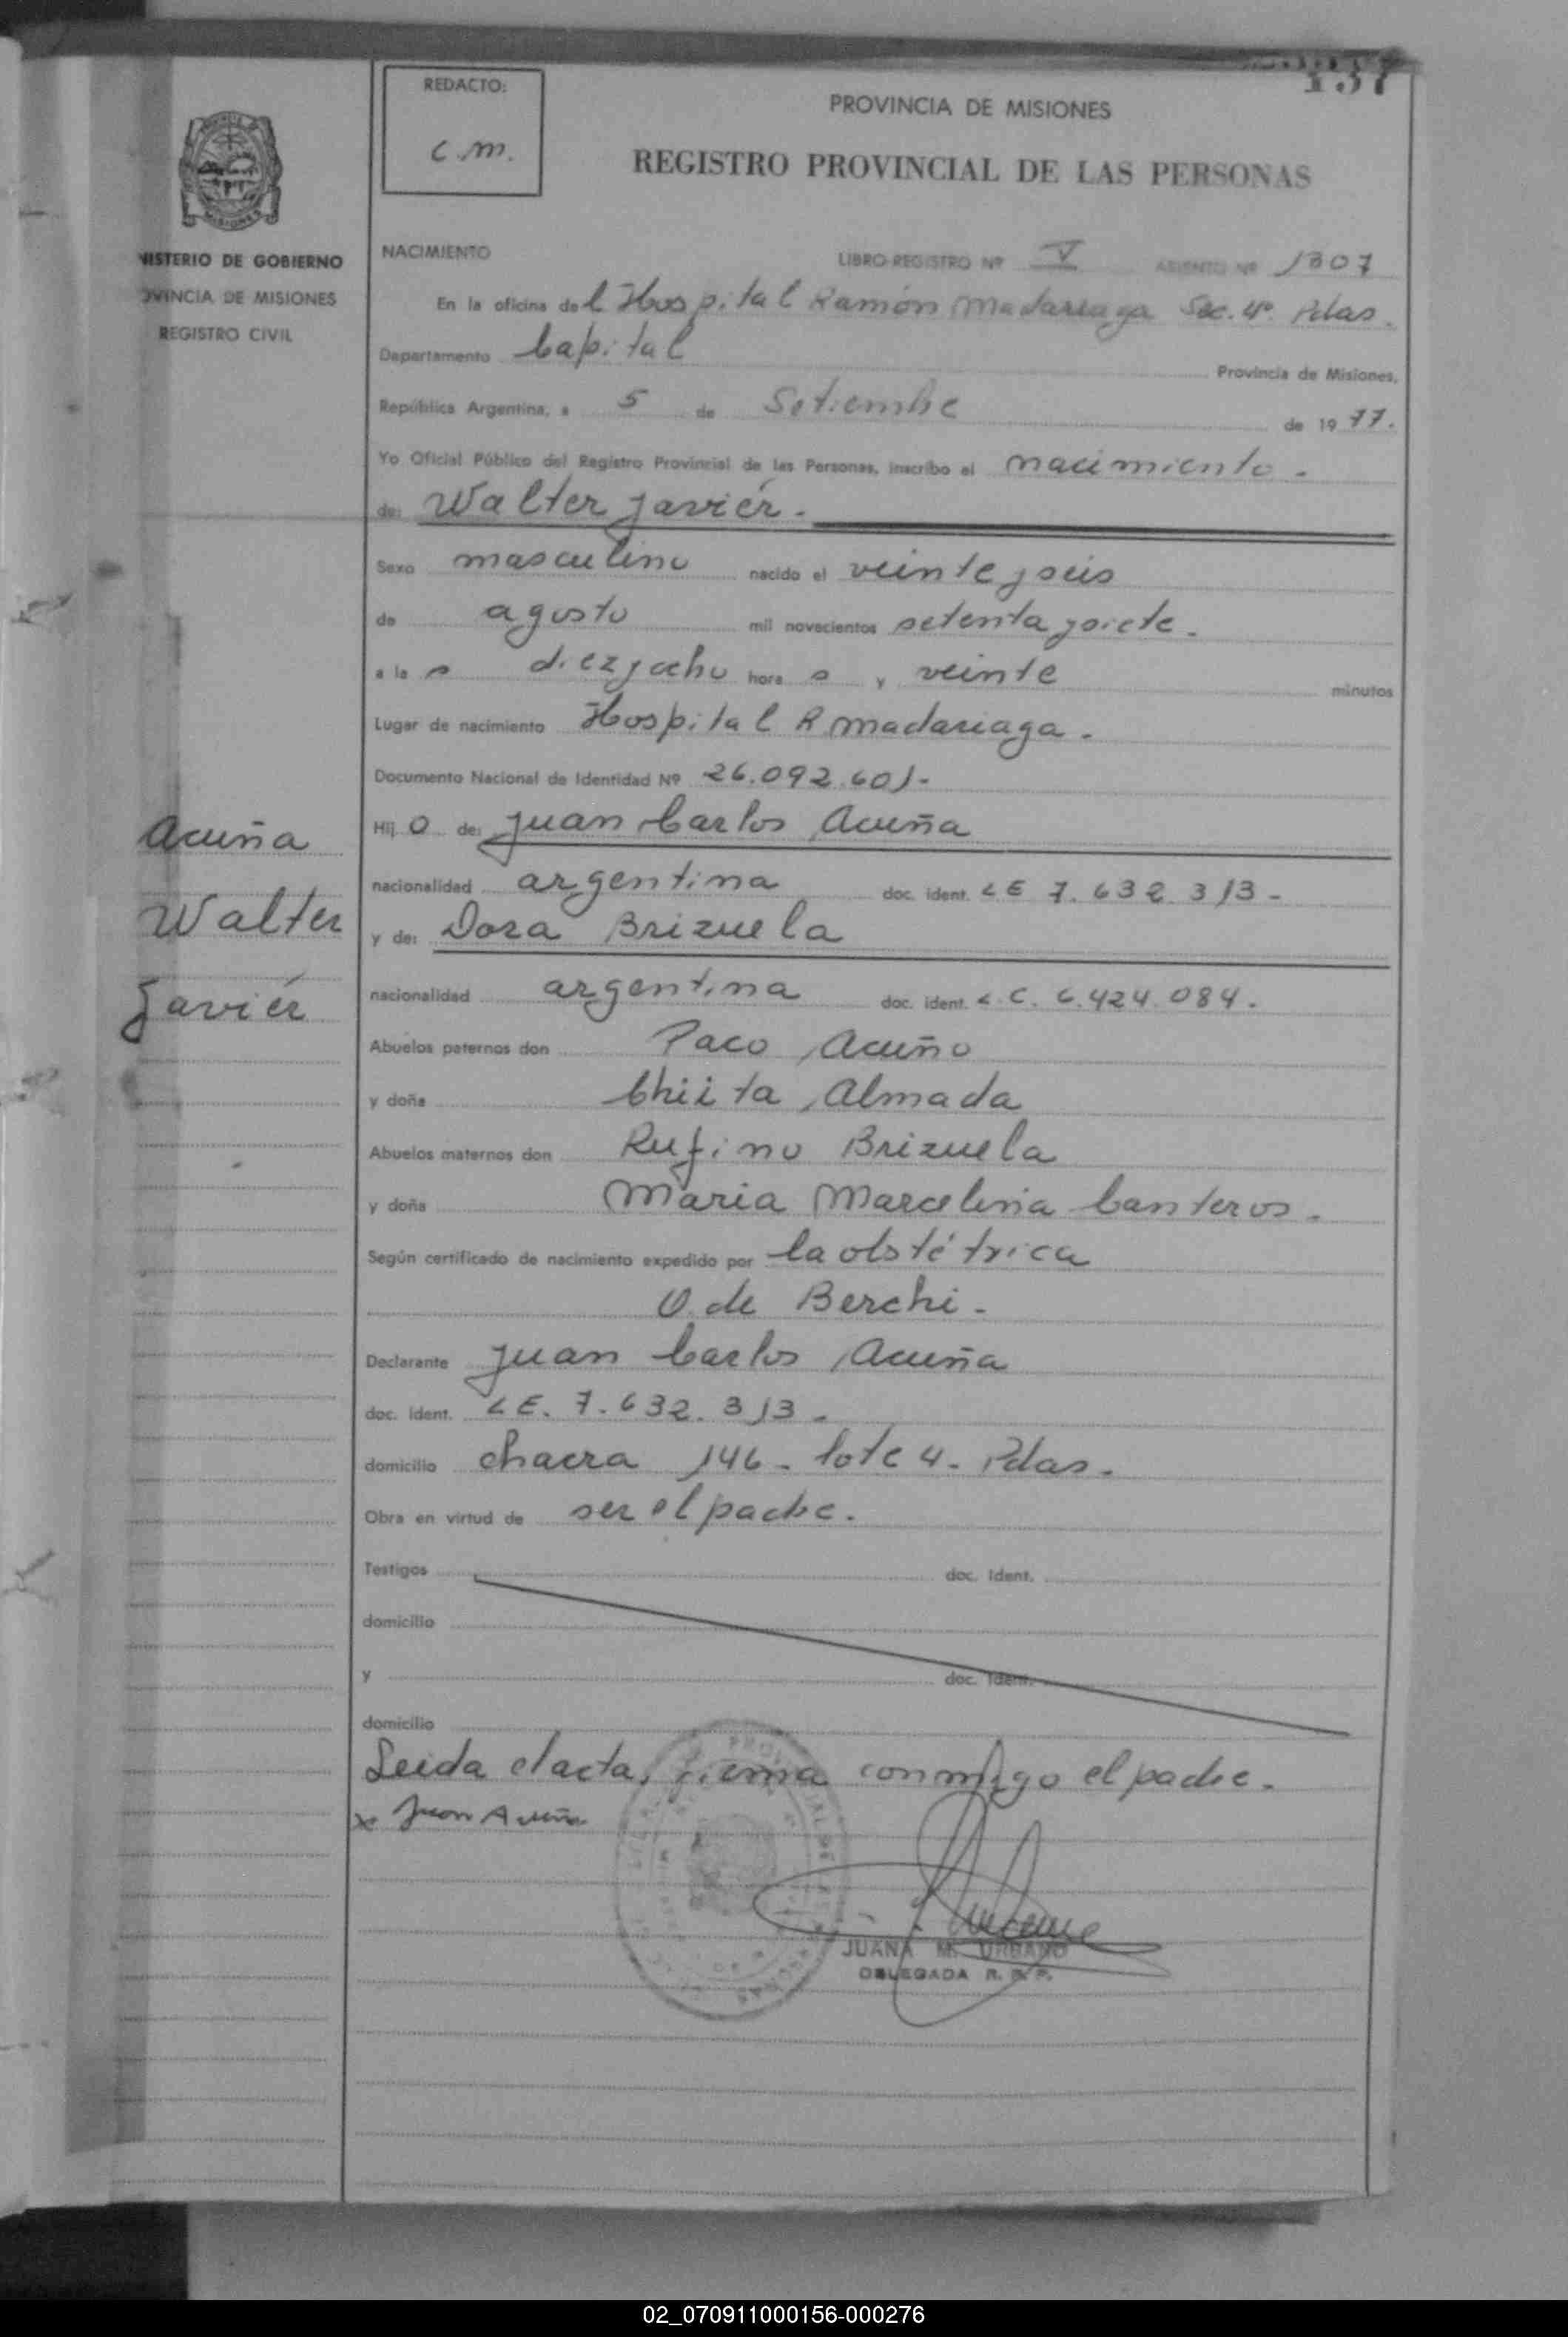 137
REDACTO:
c.m.
PROVINCIA DE MISIONES
REGISTRO PROVINCIAL DE LAS PERSONAS
MISIONES
NISTERIO DE GOBIERNO
OVINCIA DE MISIONES
REGISTRO CIVIL
NACIMIENTO LIBRO-REGISTRO Nº V ASIENTO Nº 1307
En la oficina del Hospital Ramón Madariaga Sec. 4º. Pdas.
Departamento Capital Provincia de Misiones,
República Argentina, a 5 de Setiembre de 1977.
Yo Oficial Público del Registro Provincial de las Personas, inscribo el nacimiento.
de: Walter Javiér.
Sexo masculino nacido el veinte y seis
de agosto mil novecientos setenta y siete.
a la s diez y ocho hora s y veinte minutos
Lugar de nacimiento Hospital R Madariaga.
Documento Nacional de Identidad Nº 26.092.601-
Hij o de: Juan Carlos Acuña
nacionalidad argentina doc. ident. LE 7.632.313-
y de: Dora Brizuela
nacionalidad argentina doc. ident. L.C. 6.424.084.
Abuelos paternos don Paco Acuño
y doña Chiita Almada
Abuelos maternos don Rufino Brizuela
y doña Maria Marcelina Canteros.
Según certificado de nacimiento expedido por la obstétrica
O. de Berchi.
Declarante Juan Carlos Acuña
doc. ident. LE. 7.632.313.
domicilio chacra 146- lote 4- Pdas.
Obra en virtud de ser el padre.
Testigos doc. ident.
domicilio
y doc. ident.
domicilio
Leida el acta, firma conmigo el padre.
x Juan Acuña
JUANA M. URBANO
DELEGADA R. P. P.
Acuña
Walter
Javiér
02_070911000156-000276